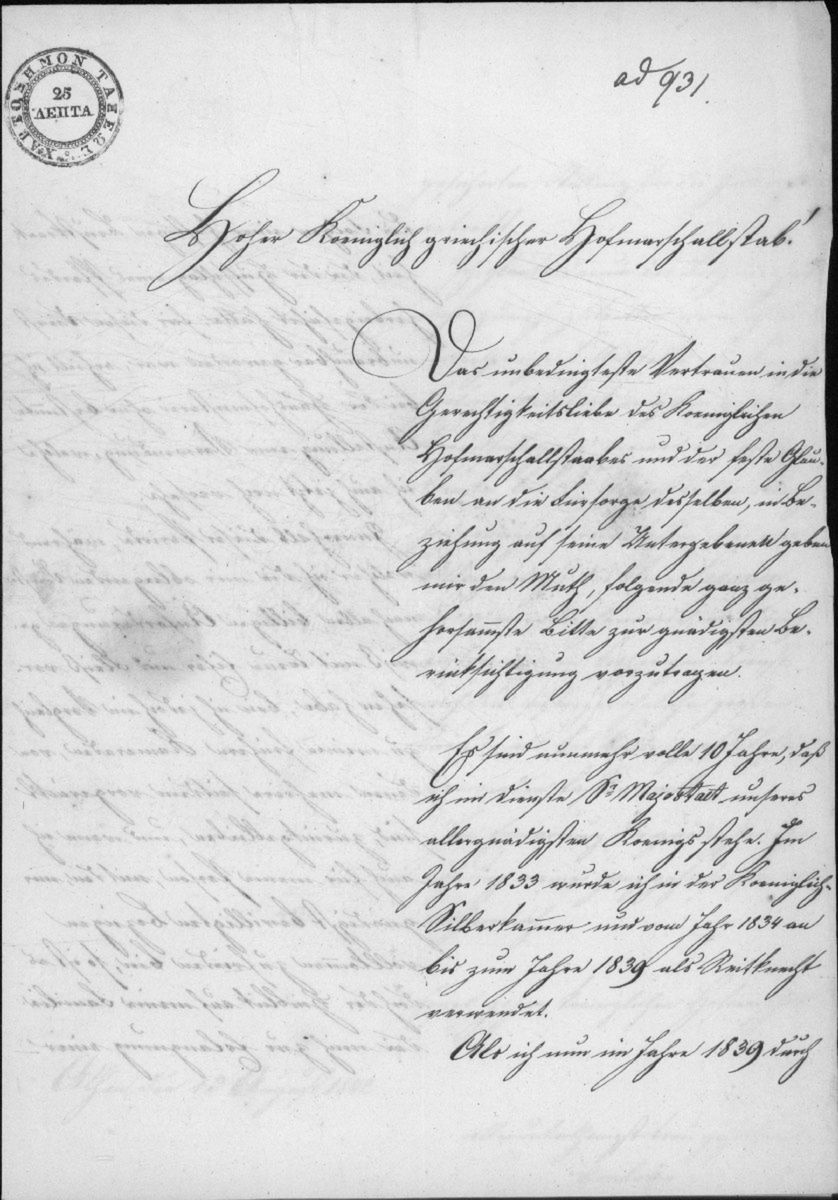 ΧΑΡΤΟΣΗΜΟΝ ΤΑΞΕΩΣ
25
ΛΕΠΤΑ
ad 931.
Hoher Koeniglich griechischer Hofmarschallstab!
Das unbedingteste Vertrauen in die
Gerechtigkeitsliebe des Koeniglichen
Hofmarschallstaabes und der feste Glau-
ben an die Fürsorge desselben, in Be-
ziehung auf seine Untergebenen geben
mir den Muth, folgende ganz ge-
horsamste Bitte zur gnädigsten Be-
rücksichtigung vorzutragen.
Es sind nunmehr volle 10 Jahre, daß
ich im Dienste Sr Majestaet unseres
allergnädigsten Koenigs stehe. Im
Jahre 1833 wurde ich in der Koeniglich-
Silberkammer und vom Jahr 1834 an
bis zum Jahre 1839 als Reitknecht
verwendet.
Als ich nun im Jahre 1839 durch